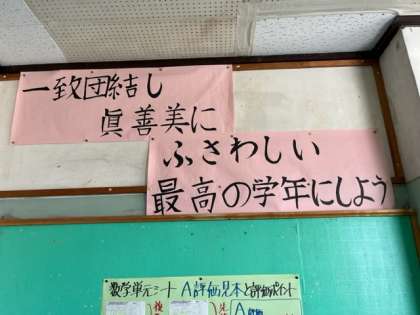 一致団結し
眞善美に
ふさわしい
最高の学年にしよう
数学単元シート A評価見本と評価ポイント